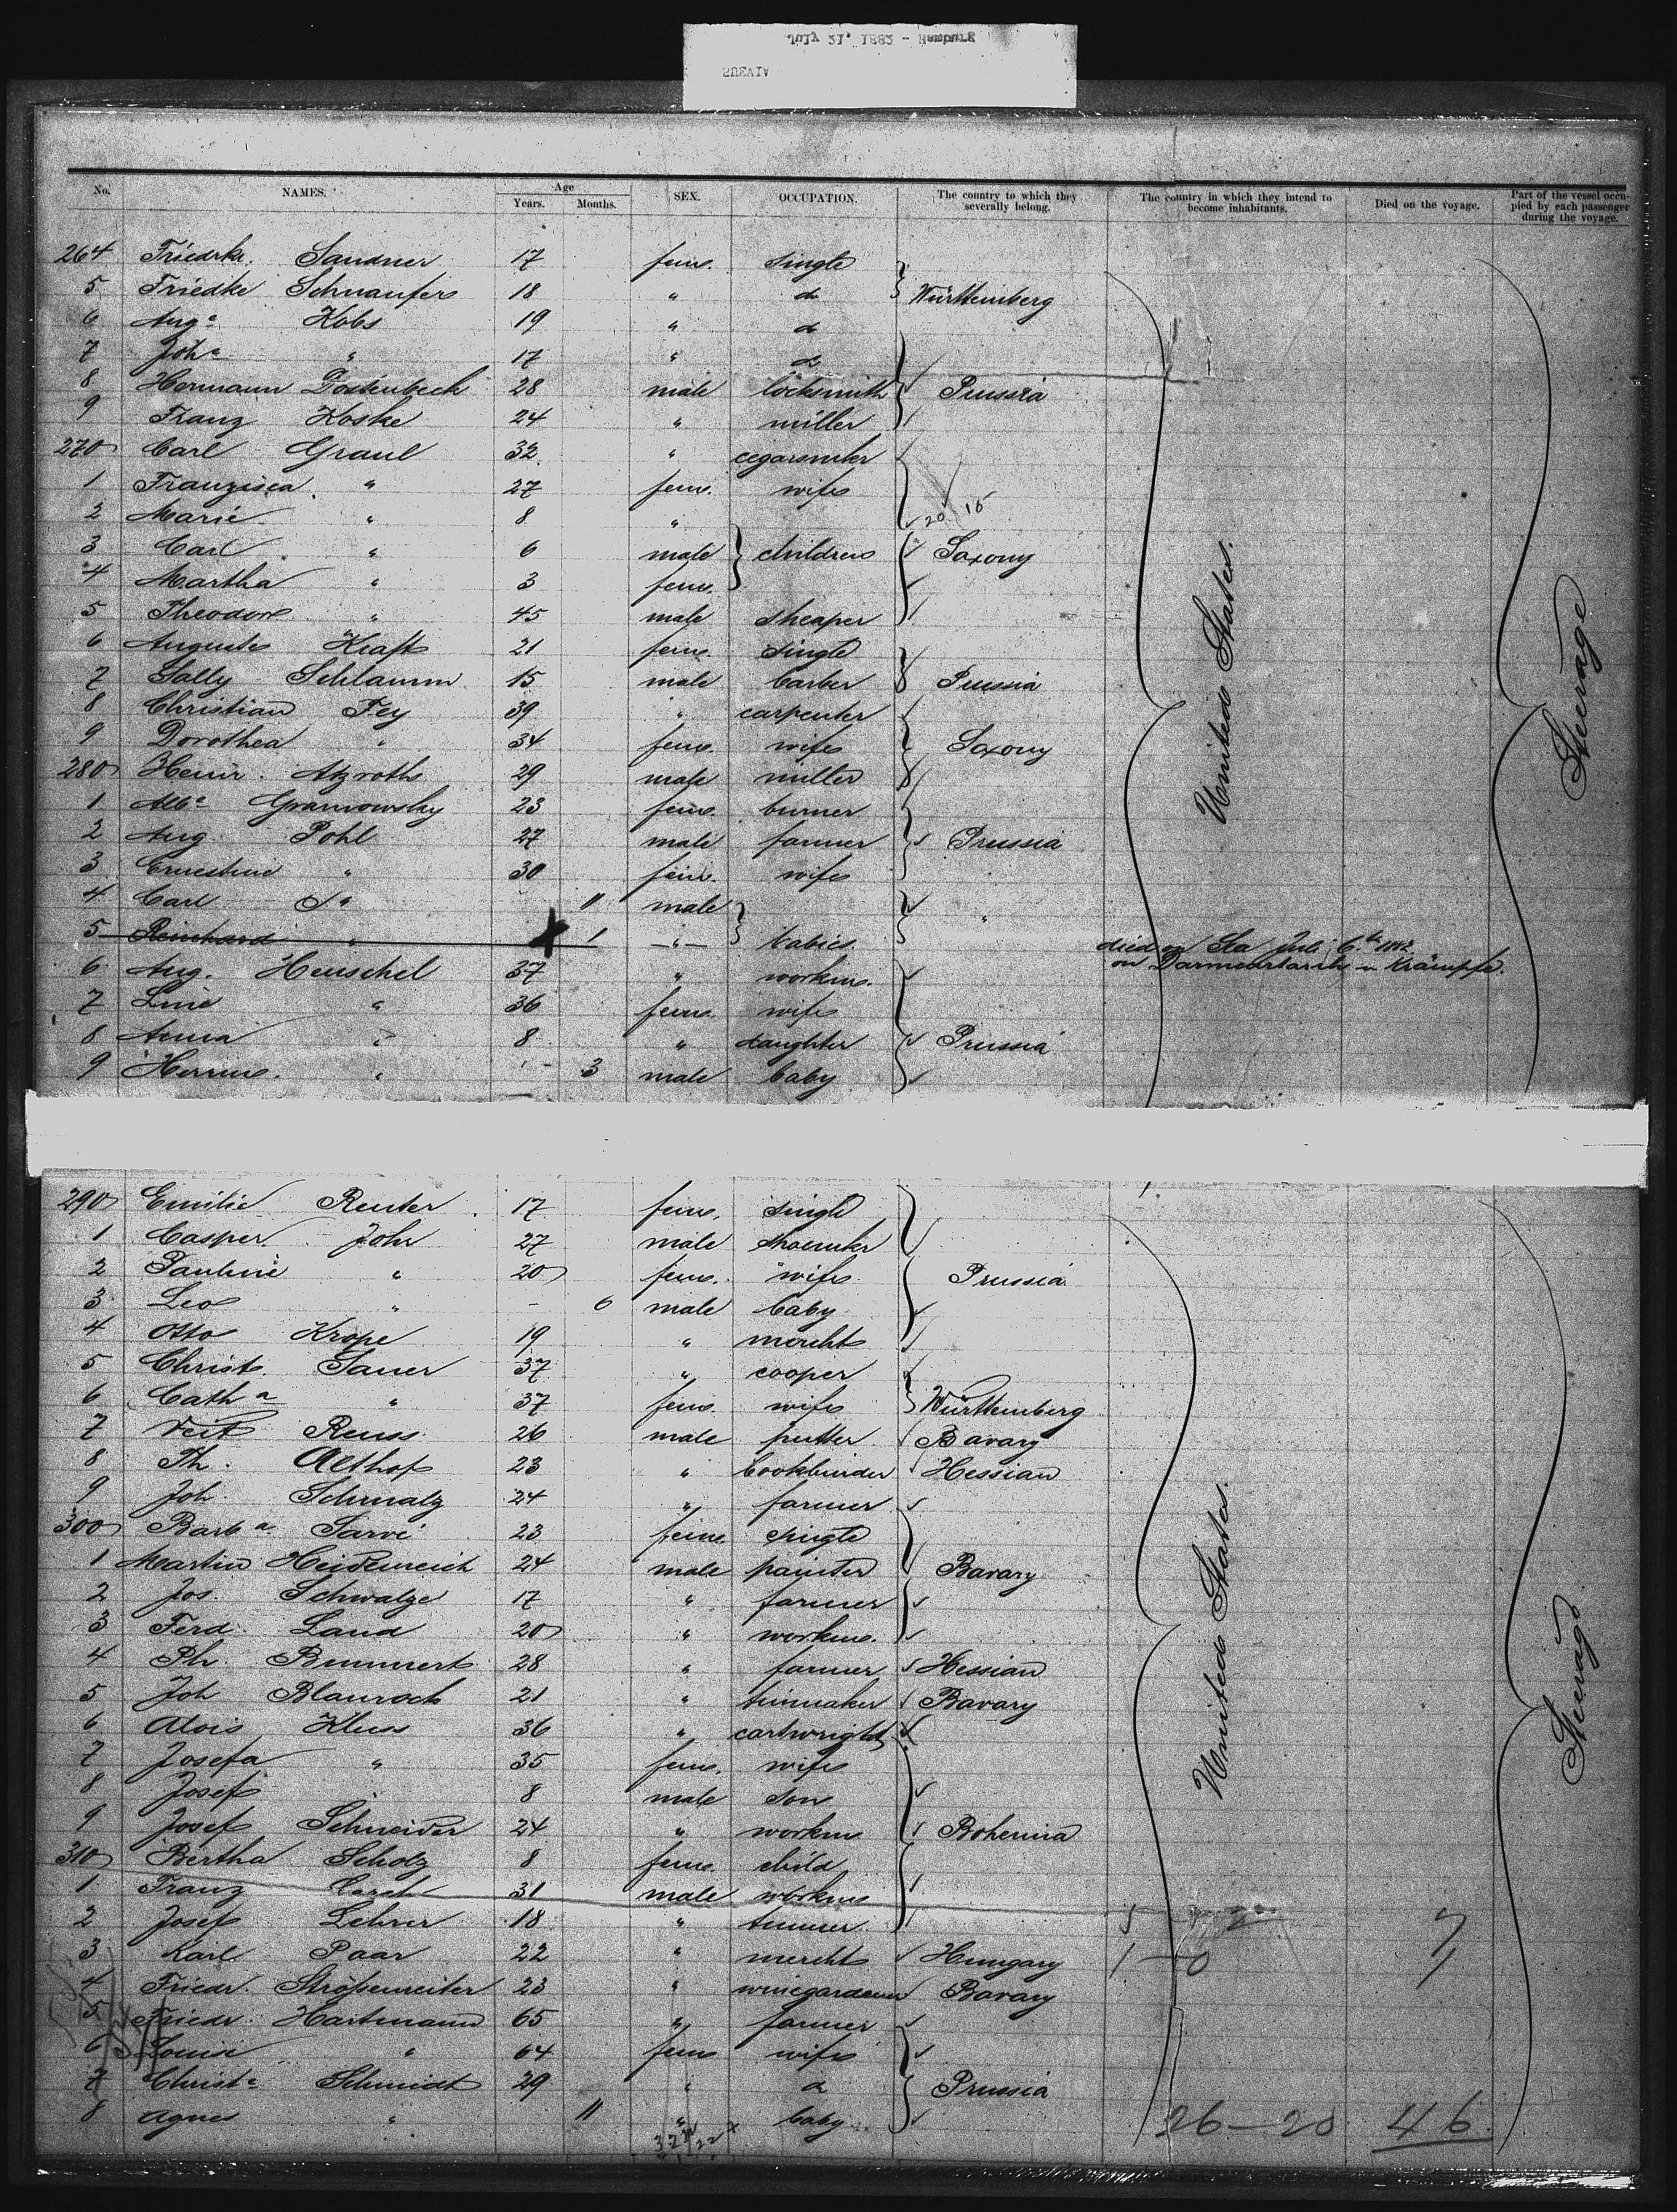 July 21, 1882 - Hamburg
SUEVIA
No. NAMES. Age Years. Months. SEX. OCCUPATION. The country to which they severally belong. The country in which they intend to become inhabitants. Died on the voyage. Part of the vessel occupied by each passenger during the voyage.
264 Friedrke. Sandner 17 fem. single
5 Friedke Schnaufer 18 " do Württemberg
6 Auge Kobs 19 " do
7 Johe " 17 " do
8 Hermann 28 male locksmith Prussia
9 Franz Koske 24 " miller
270 Carl Graul 32 " cegarsmker
1 Franzisca " 27 fem. wife
2 Marie " 8 " 20 15
3 Carl " 6 male children Saxony
4 Martha " 3 fem.
5 Theodor " 45 male sheaper
6 Auguste Kraft 21 fem. single
7 Sally Schlamm 15 male barber Prussia
8 Christian Fey 39 " carpenter
9 Dorothea " 34 fem. wife Saxony
280 Heinr. Atzroth 29 male miller
1 Albe Gramowsky 23 fem. burner
2 Aug. Pohl 27 male farmer Prussia
3 Ernestine " 30 fem. wife
4 Carl " 11 male "
5 Reinhard " 1 " babies died on Sea Juli 6th 1882
on Darmcatarrh u Krämpfe.
6 Aug. Henschel 37 " workm.
7 Line " 36 fem. wife
8 Anna " 8 " daughter Prussia
9 Herrm. " - 3 male baby
United States.
Steerage
290 Emilie Reuter 17 fem. single
1 Casper Johr 27 male shoemkr
2 Pauline " 20 fem. wife Prussia
3 Leo " - 6 male baby
4 Otto Krope 19 " mercht
5 Christ. Sauer 37 " cooper
6 Catha " 37 fem. wife Württemberg
7 Veit Reuss 26 male putter Bavary
8 Th. Althof 23 " bookbinder Hessian
9 Joh. Schmalz 24 " farmer
300 Barba Sarvé 23 fem. single
1 Martin Heidenreich 24 male painter Bavary
2 Jos. Schwalge 17 " farmer
3 Ferd. Land 20 " workm.
4 Ph. Bummert 28 " farmer Hessian
5 Joh Blaurock 21 " tinmaker Bavary
6 Alois Kluss 36 " cartwright
7 Josefa " 35 fem. wife
8 Josef " 8 male son
9 Josef Schneider 24 " workm Bohemia
310 Bertha Scholz 8 fem. child
1 Franz 31 male workm
2 Josef Lehrer 18 " tinner
3 Karl Paar 22 " mercht Hungary 1 - 0
4 Friedr. Strössenreiter 23 " winegardener Bavary
5 Friedr. Hartmann 65 " farmer
6 Louise " 64 fem wife
7 Christe Schmidt 29 " do Prussia
8 Agnes " 11 " baby 26 - 20 46
United States.
Steerage